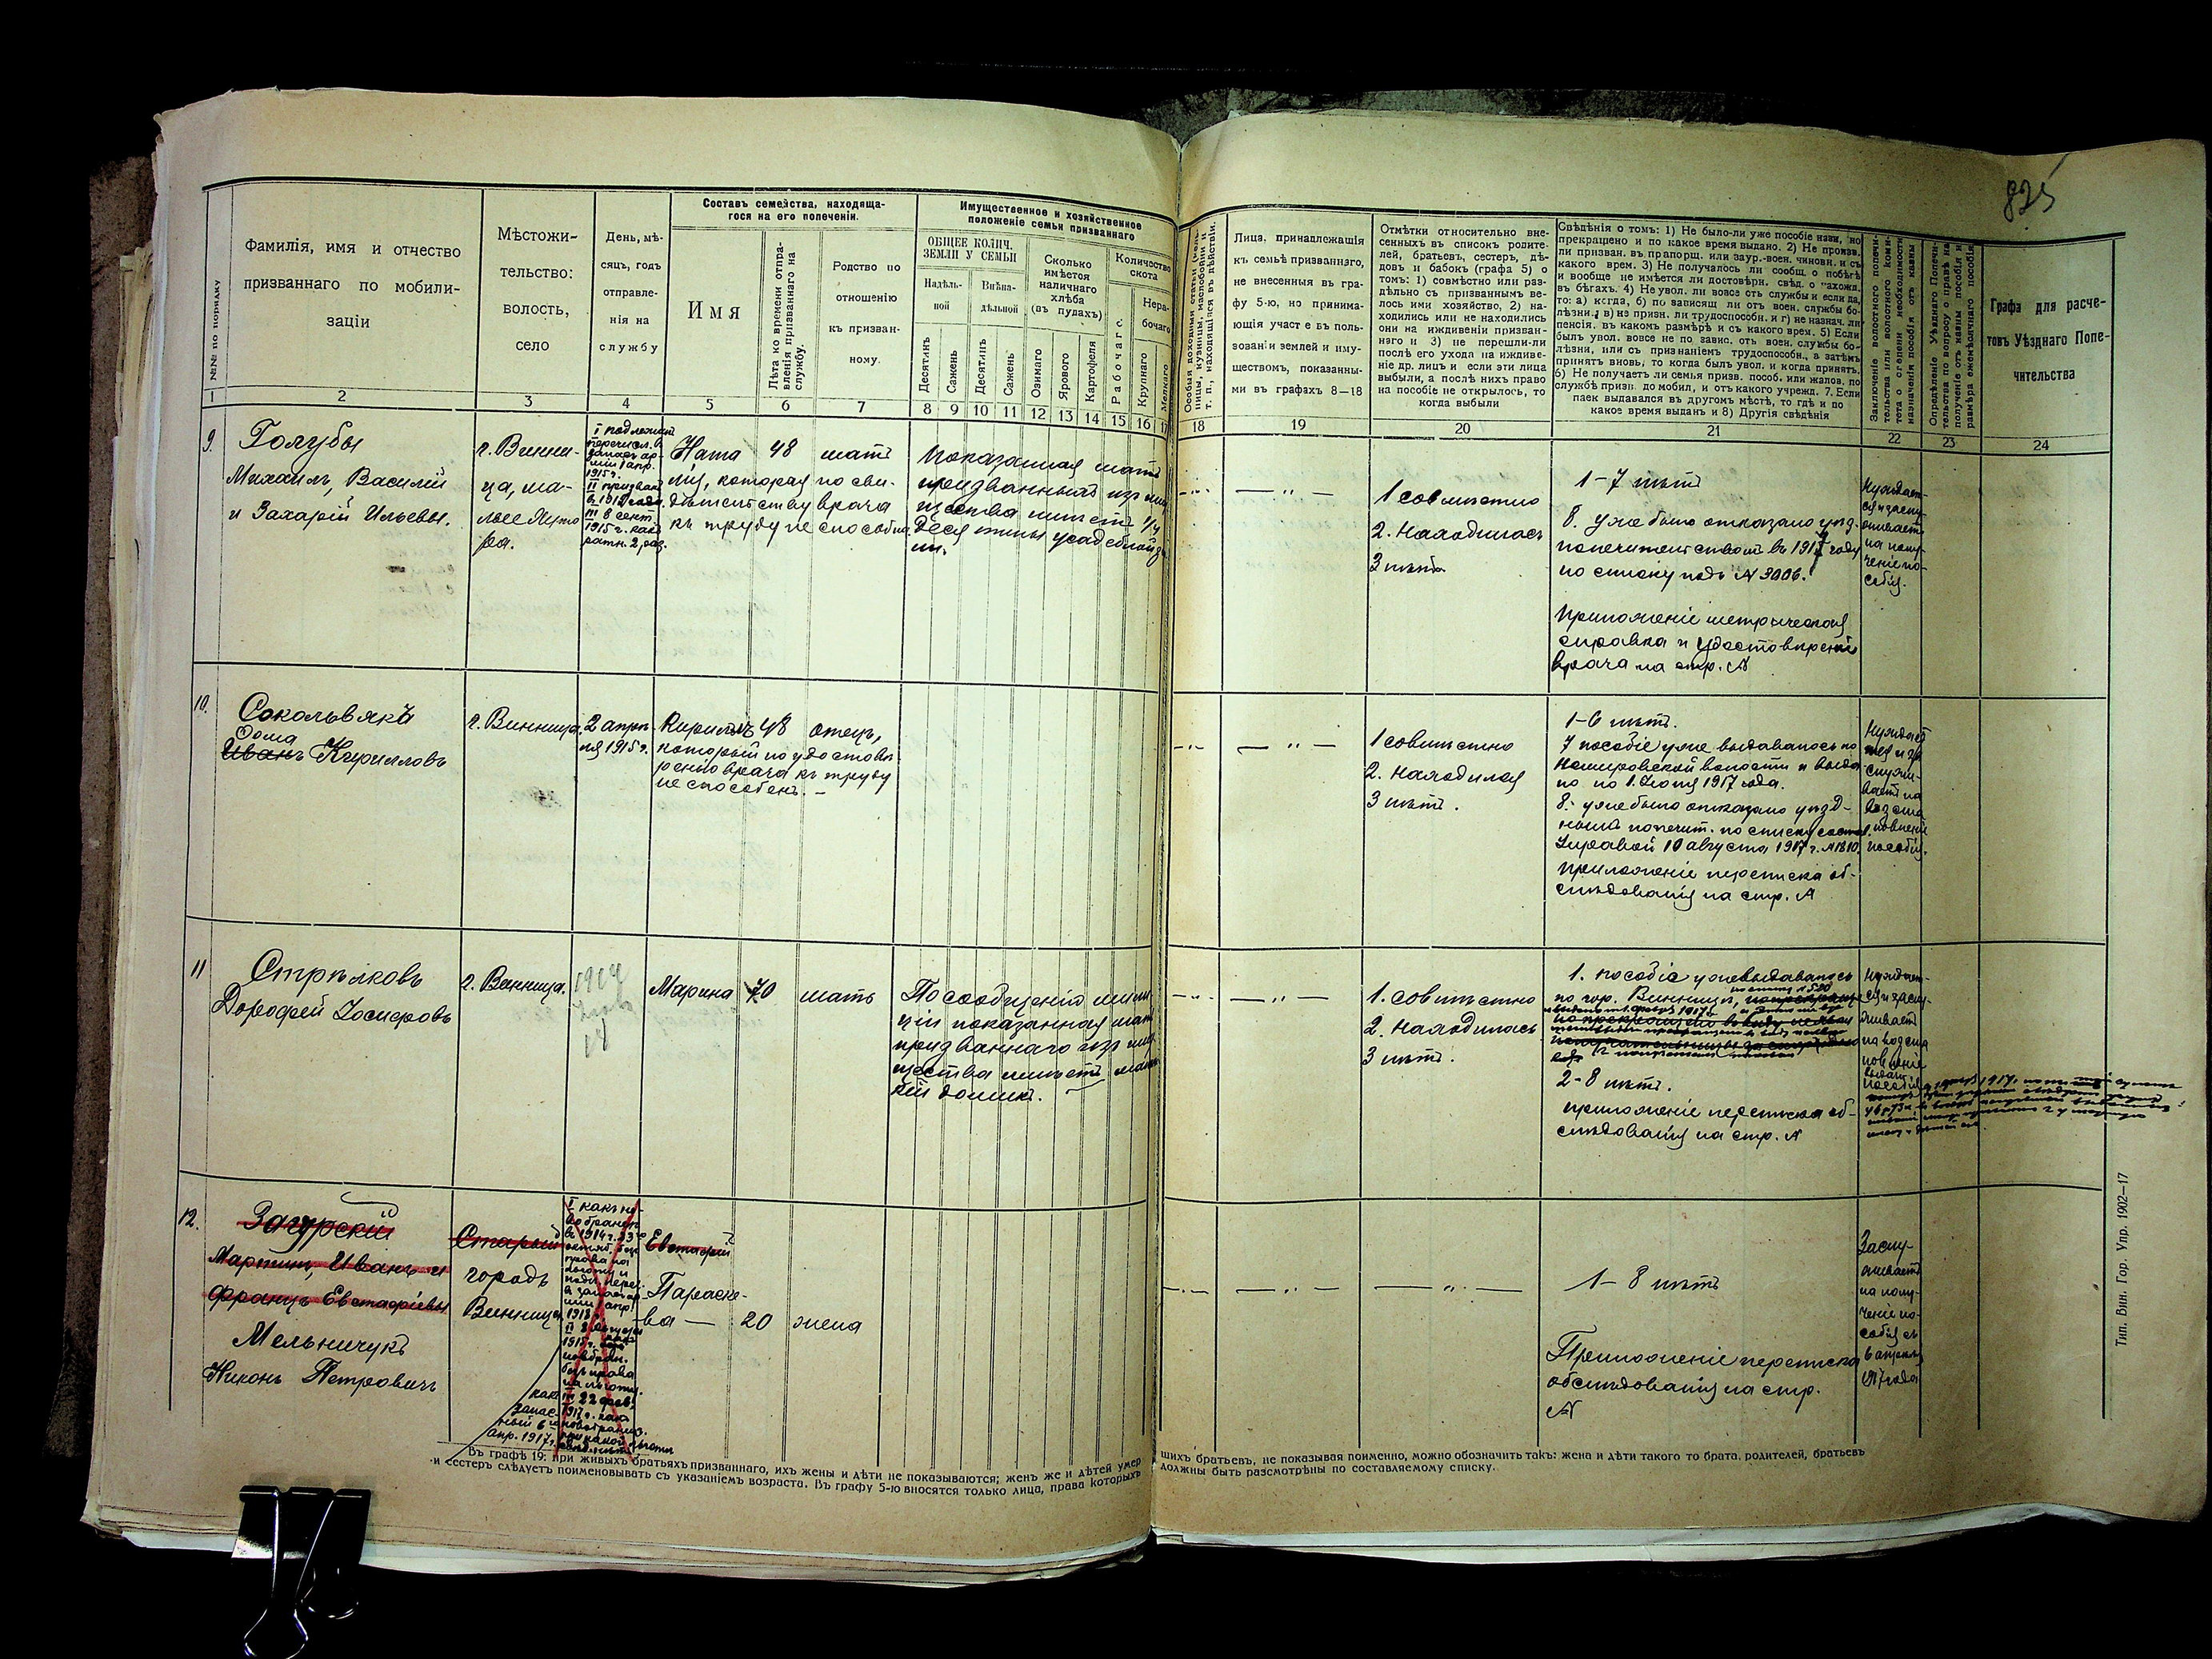 825
№№ по порядку
Фамилія, имя и отчество
призваннаго по мобили-
заціи
Мѣстожи-
тельство:
волость,
село
День, мѣ-
сяцъ, годъ
отправле-
нія на
службу
Составъ семейства, находяща-
гося на его попеченіи.
Имя
Лѣта ко времени отпра-
вленія призваннаго на
службу.
Родство по
отношенію
къ призван-
ному.
Имущественное и хозяйственное
положеніе семьи призваннаго
ОБЩЕЕ КОЛИЧ.
ЗЕМЛИ У СЕМЬИ
Надѣль-
ной
Внѣна-
дѣльной
Десятинъ
Сажень
Десятинъ
Сажень
Сколько
имѣется
наличнаго
хлѣба
(въ пудахъ)
Озимаго
Ярового
Картофеля
Количество
скота
Рабочаго
Нера-
бочаго
Крупнаго
Мелкаго
Лица, принадлежащія
къ семьѣ призваннаго,
не внесенныя въ гра-
фу 5-ю, но принима-
ющія участіе въ поль-
зованіи землей и иму-
ществомъ, показанны-
ми въ графахъ 8—18
Отмѣтки относительно вне-
сенныхъ въ списокъ родите-
лей, братьевъ, сестеръ, дѣ-
довъ и бабокъ (графа 5) о
томъ: 1) совмѣстно или раз-
дѣльно съ призваннымъ ве-
лось ими хозяйство, 2) на-
ходились или не находились
они на иждивеніи призван-
наго и 3) не перешли-ли
послѣ его ухода на иждиве-
ніе др. лицъ и если эти лица
выбыли, а послѣ нихъ право
на пособіе не открылось, то
когда выбыли
Свѣдѣнія о томъ: 1) Не было-ли уже пособіе назн., но
прекращено и по какое время выдано. 2) Не произв.
ли призван. въ прапорщ. или заур.-воен. чиновн. и съ
какого врем. 3) Не получалось ли сообщ. о побѣгѣ
и вообще не имѣется ли достовѣрн. свѣд. о нахожд.
въ бѣгахъ. 4) Не увол. ли вовсе отъ службы и если да,
то: а) когда, б) по зависящ ли отъ воен. службы бо-
лѣзни, в) из призн. ли трудоспособн. и г) не назнач. ли
пенсія, въ какомъ размѣрѣ и съ какого врем. 5) Если
былъ увол. вовсе не по завис. отъ воен. службы бо-
лѣзни, или съ признаніемъ трудоспособн., а затѣмъ
принятъ вновь, то когда былъ увол. и когда принятъ.
6) Не получаетъ ли семья призв. пособ. или жалов. по
службѣ призн. до мобил., и отъ какого учрежд. 7. Если
паек выдавался въ другомъ мѣстѣ, то гдѣ и по
какое время выданъ и 8) Другія свѣдѣнія
Заключеніе волостного попечи-
тельства или волостного коми-
тета о степени необходимости
назначенія пособія отъ казны
Опредѣленіе Уѣзднаго Попечи-
тельства по вопросу о правѣ на
полученіе отъ казны пособія и
размѣра ежемѣсячнаго пособія
Графа для расче-
товъ Уѣзднаго Попе-
чительства
1 2 3 4 5 6 7 8 9 10 11 12 13 14 15 16 17 18 19 20 21 22 23 24
9.
Голубы
Михаилъ, Василій
и Захарій Ильевы.
г. Винни-
ца, ма-
лые Хуто
ра.
48 мать
которая по сви-
дѣтельству врача
къ труду не способна.
Показанная мать
призванныхъ изъ иму
щества имѣетъ 1/4
десятины усадебной з
1 совмѣстно
2. Находилась
3 нѣтъ
1-7 нѣтъ
8. Уже было отказано уѣзд.
попечительствомъ въ 1917 году
по списку подъ № 3006.
Приложеніе метрическая
справка и удостовѣреніе
врача на стр. №
Нуждает-
ся и заслу-
живаетъ
на полу-
ченіе по-
собія.
10.
Сокольвякъ
Фома
Иванъ Кирилловъ
г. Винница
2 апрѣ-
ля 1915 г.
Кириллъ 48 отецъ,
который по удостовѣ
ренію врача къ труду
не способенъ. —
1 совмѣстно
2. Находился
3 нѣтъ.
1-6 нѣтъ.
7 пособіе уже выдавалось по
Немировской волости и выда
но по 1. Іюня 1917 года.
8. уже было отказано уѣзд-
нымъ попечит. по списку состав.
Управой 10 августа 1917 г. № 1810.
приложеніе переписка об-
слѣдованія на стр. №
11
Стрѣлковъ
Дорофей Іосифовъ
г. Винница.
1914
Марина 70 мать
По сообщенію мили
ціи показанная мать
призваннаго изъ иму
щества имѣетъ малень
кій домикъ. —
1. совмѣстно
2. Находилась
3 нѣтъ.
1. пособіе уже выдавалось
по гор. Винницѣ,
2-8 нѣтъ.
приложеніе переписка об-
слѣдованія на стр. №
Нуждает-
ся и заслу-
живаетъ
на возста
новленіе
пособія
12.
Загурскій
Мартинъ, Иванъ и
Францъ Евстафіевы
Мельничукъ
Никонъ Петровичъ
Старый
городъ
Винница
Евстафій
Параске-
ва — 20 жена
1-8 нѣтъ
Приложеніе переписка
обслѣдованія на стр.
№
Заслу-
живаетъ
на полу-
ченіе по-
собія съ
6 апрѣля
1917 года
Въ графѣ 19: при живыхъ братьяхъ призваннаго, ихъ жены и дѣти не показываются; женъ же и дѣтей умер
шихъ братьевъ, не показывая поименно, можно обозначить такъ: жена и дѣти такого то брата, родителей, братьевъ
и сестеръ слѣдуетъ поименовывать съ указаніемъ возраста. Въ графу 5-ю вносятся только лица, права которыхъ
должны быть разсмотрѣны по составляемому списку.
Тип. Вин. Гор. Упр. 1902—17